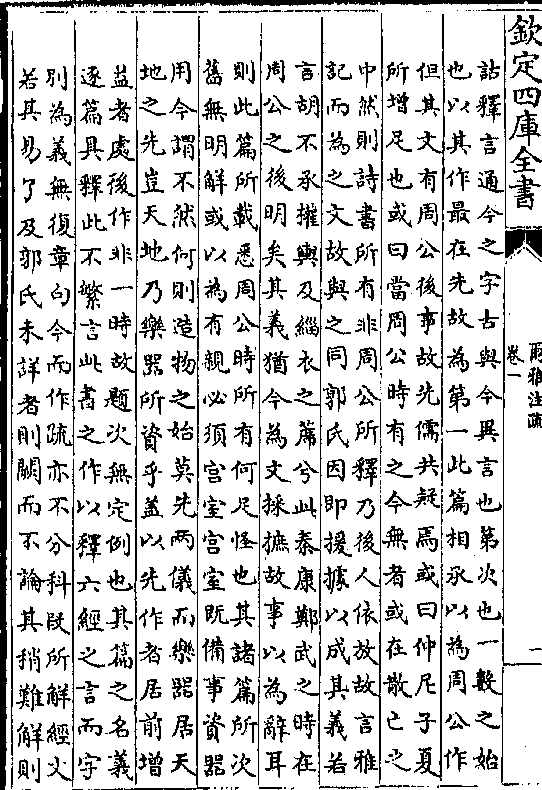 欽定四庫全書
爾雅注疏
卷一
一
詁釋言通今之字古與今異言也第次也一數之始
也以其作最在先故為第一此篇相承以為周公作
但其文有周公後事故先儒共疑焉或曰仲尼子夏
所增足也或曰當周公時有之今無者或在散亡之
中然則詩書所有非周公所釋乃後人依放故言雅
記而為之文故與之同郭氏因即援據以成其義若
言胡不承權輿及緇衣之蓆兮此秦康鄭武之時在
周公之後明矣其義猶今為文採摭故事以為辭耳
則此篇所載悉周公時所有何足怪也其諸篇所次
舊無明解或以為有親必須宮室宮室既備事資器
用今謂不然何則造物之始莫先兩儀而樂器居天
地之先豈天地乃樂器所資乎蓋以先作者居前增
益者處後作非一時故題次無定例也其篇之名義
逐篇具釋此不繁言此書之作以釋六經之言而字
別為義無復章句今而作疏亦不分科段所解經文
若其易了及郭氏未詳者則闕而不論其稍難解則